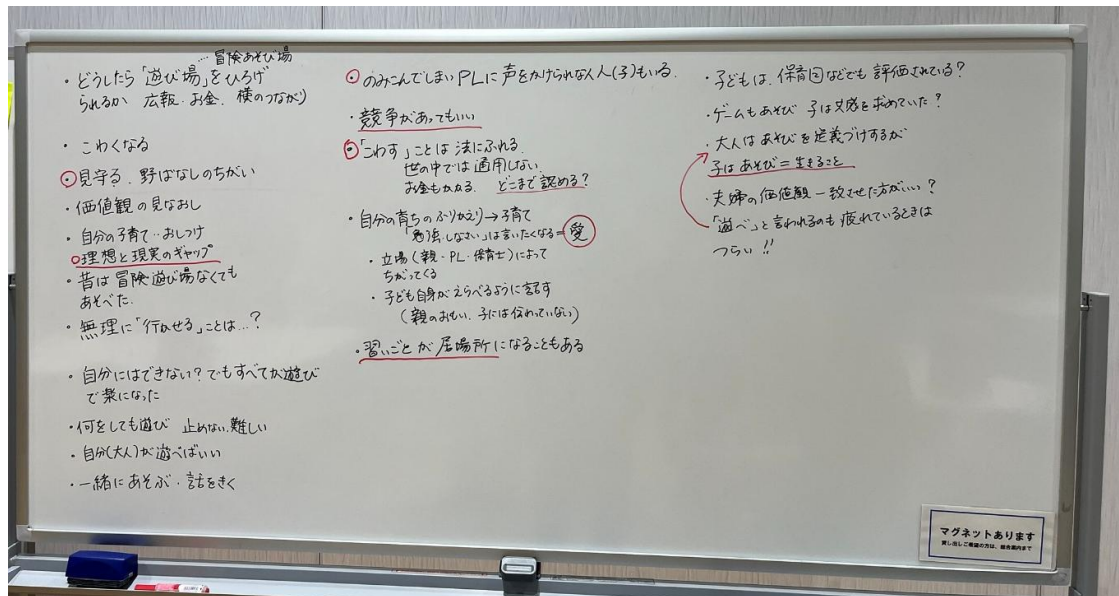 …冒険あそび場
・どうしたら「遊び場」をひろげ
られるか 広報・お金・横のつながり)
・こわくなる
・見守る、野ばなしのちがい
・価値観の見なおし
・自分の子育て…おしつけ
理想と現実のギャップ
・昔は冒険遊び場なくても
あそべた.
・無理に「行かせる」ことは…?
・自分にはできない?でもすべてが遊び
で楽になった
・何をしても遊び 止めない.難しい
・自分(大人)が遊べばいい
・一緒にあそぶ・話をきく
・のみこんでしまいPLに声をかけられない人(子)もいる.
・競争があってもいい
・「こわす」ことは法にふれる.
世の中では通用しない.
お金もかかる. どこまで認める?
・自分の育ちのふりかえり→子育て
「勉強しなさい」は言いたくなる=愛
・立場(親・PL・保育士)によって
ちがってくる
・子ども自身がえらべるように話す
(親のおもい、子には伝わっていない)
・習いごとが居場所になることもある
・子どもは、保育園などでも評価されている?
・ゲームもあそび 子は共感を求めていた?
・大人はあそびを定義づけするが
子はあそび=生きること
・夫婦の価値観一致させた方がいい?
「遊べ」と言われるのも疲れているときは
つらい!!
マグネットあります
貸し出しご希望の方は、総合案内まで